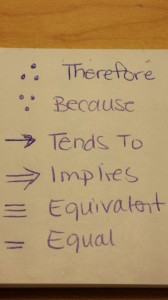 ∴ Therefore
∵ Because
→ Tends To
⇒ Implies
≡ Equivalent
= Equal